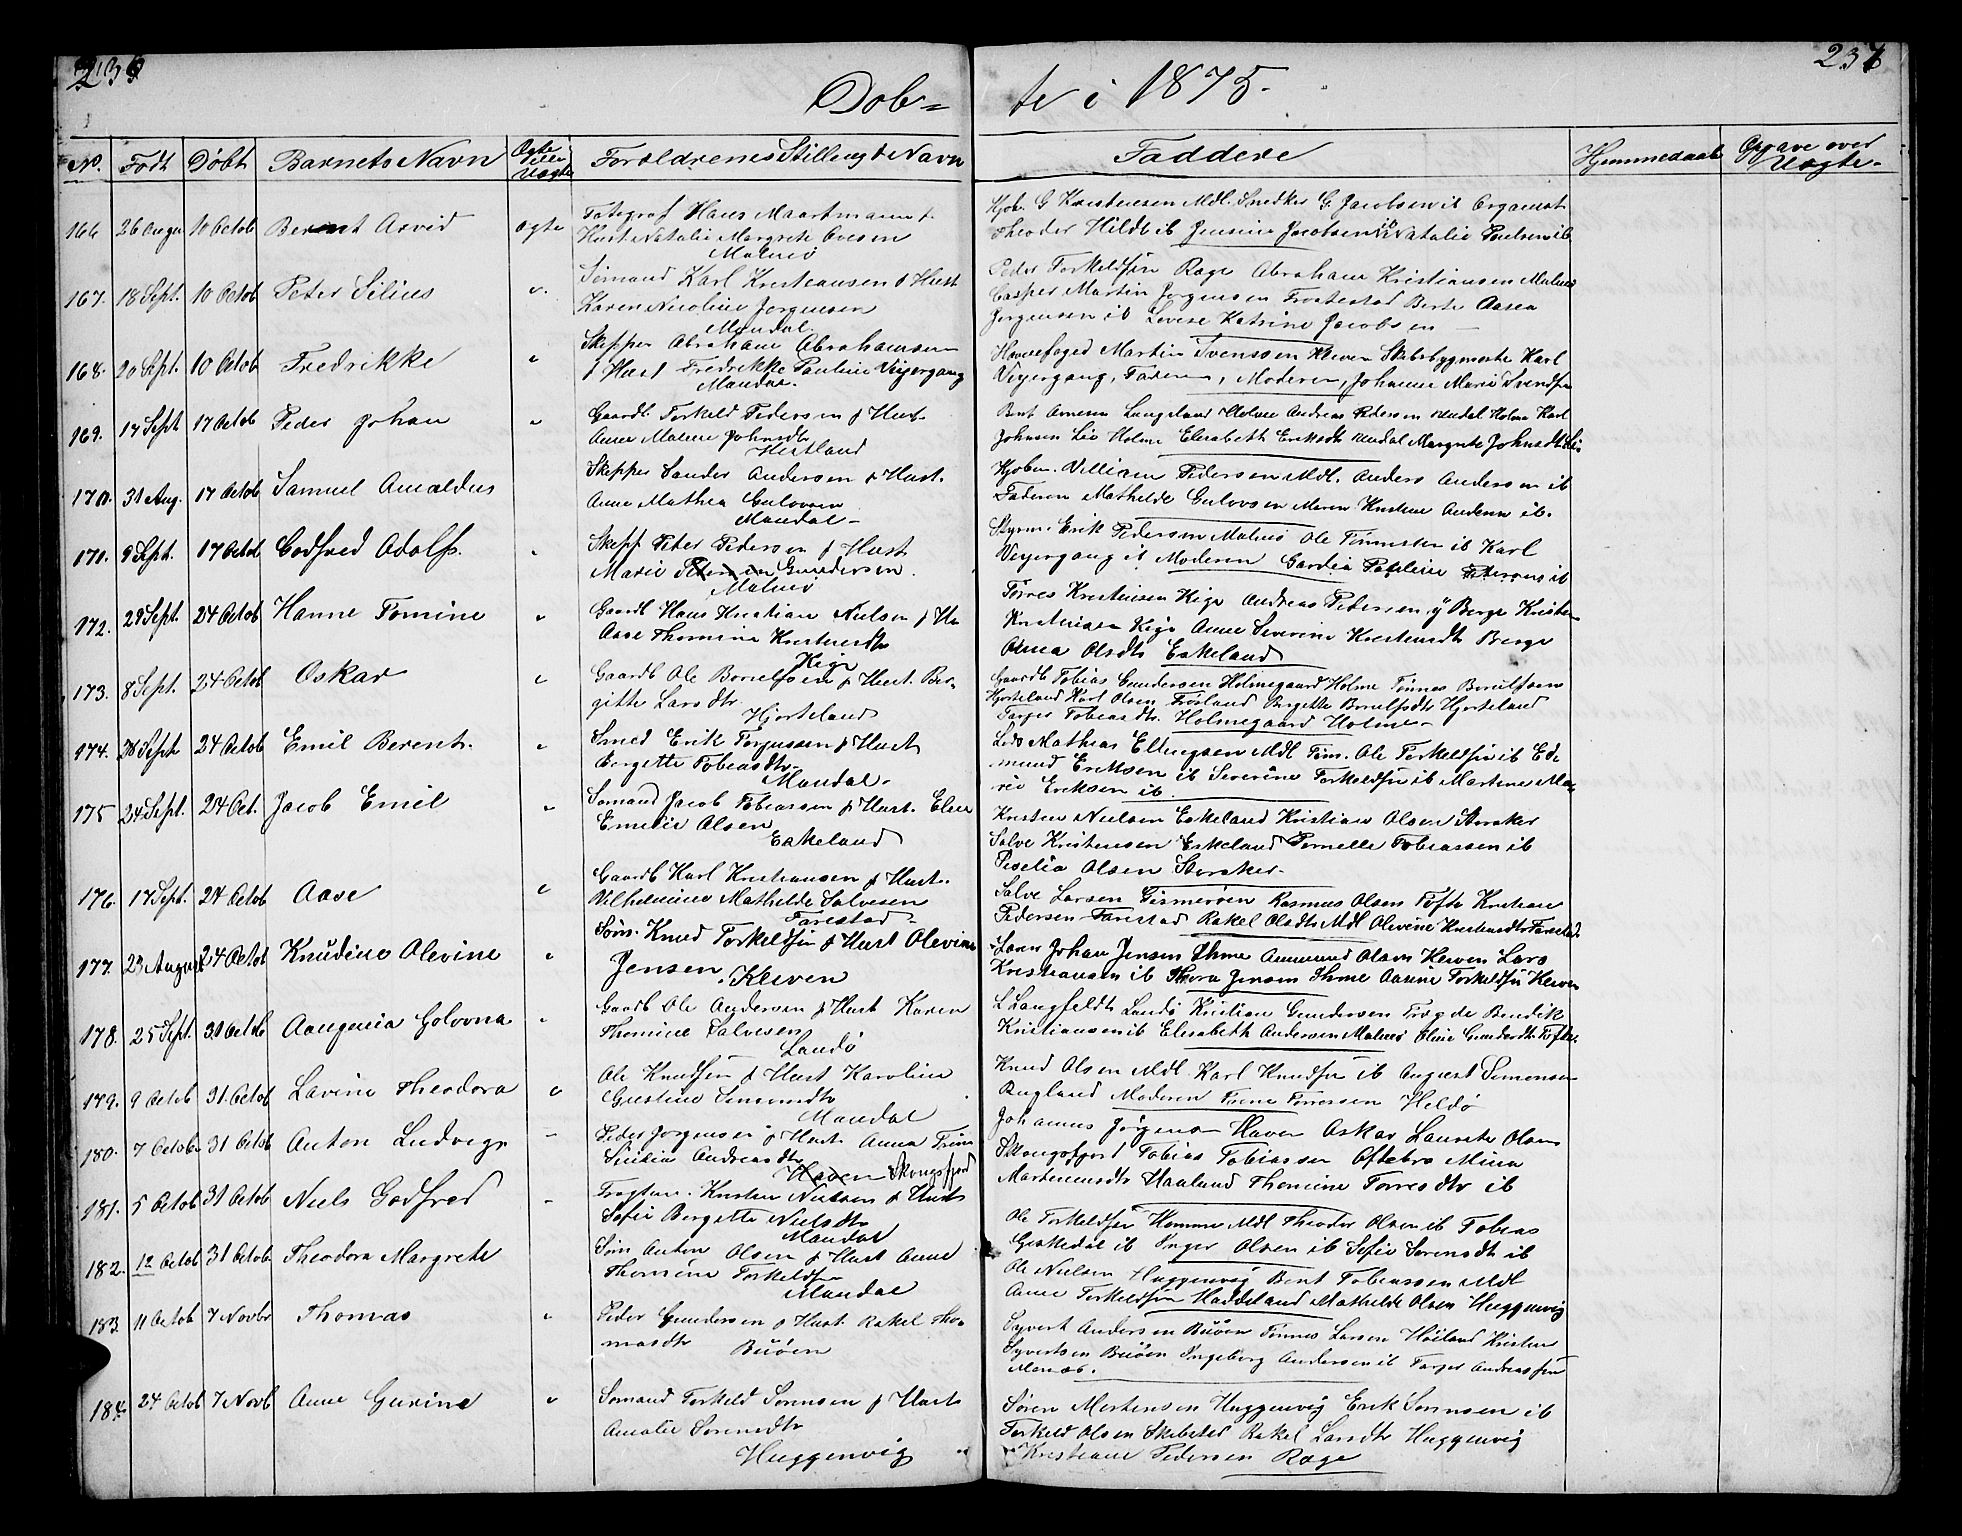 236
237
Døb- te i 1875.
No. Født Døbt Barnets Navn Ægte eller Uægte Forældrenes Stilling & Navn
Faddere Hjemmedaab Opgave over Uægte
166 26 Augu 10 Octob Bernt Arvid ægte Fotograf Hans Maartmann &
Hust Natalie Margrete Ovesen
Malmø
Kjøb. G Kristensen Mdl. Snedker G. Jacobsen ib Organist
Theodor Hildt ib Jensine Jacobsen ib Natalie Poulsen ib
167. 18 Sept. 10 Octob Peter Silius Sømand Karl Kristiansen & Hust
Karen Nicoline Jørgensen
Mandal
Peder Torkeldsøn Røge Abraham Kristiansen Malmø
Casper Martin Jørgensen Frostestad Berte Aasea
Jørgensen ib Lovise Katrine Jacobsen
168. 20 Sept. 10 Octob Fredrikke Skipper Abraham Abrahamsen
& Hust Fredrikke Pauline Veyergang
Mandal.
Havnefoged Martin Svensson Kleven Skibsbygmester Karl
Veyergang, Faderen, Moderen, Johanne Marie Svendsen
169. 14 Sept 17 Octob Peder Johan Gaardb Torkeld Pedersen & Hust.
Anne Malene Johnsdtr
Hestland
Bent Arnesen Langeland Holme Andreas Pedersen Undal Holme Karl
Johnsen Lie Holme Elisabeth Eriksdtr Undal Margrete Johnsdtr Lie
170. 31 Aug. 17 Octob Samuel Amaldus Skipper Sander Andersen & Hust.
Anne Mathea Gulovsen
Mandal
Kjøbm. Villiam Pedersen Mdl. Anders Andersen ib
Faderen Mathilde Gulovsen Maren Kristine Andersen ib.
171. 9 Sept. 17 Octob Godfred Adolf. Skipp Peter Pedersen & Hust
Marie Gundersen
Malmø
Styrm. Erik Pedersen Malmø Ole Tønnesen ib Karl
Veyergang ib Moderen Gardia Pauline Petersen ib
172. 29 Sept. 24 Octob Hanne Tomine Gaardb Hans Kristian Nielsen & Hu
Aase Thomine Kristensdtr
Kige
Tørres Kristensen Kige Andreas Pedersen y Berge Kristen
Kristensen Kige Anne Severine Kristensdtr Berge
Anna Olsdtr Eskeland
173. 8 Sept. 24 Octob Oskar Gaardb Ole Borulfsen & Hust. Ber-
gitte Larsdtr
Hjorteland
Gaardb Tobias Gundersen Holmegaard Holme Tønnes Borulfsen
Hjorteland Karl Olsen Frøsland Bergitte Borulfsdtr Hjorteland
Torger Tobiasdtr. Holmegaard Holme
174. 28 Sept 24 Octob Emil Berent. Smed Erik Torjussen & Hust
Bergitte Tobiasdtr
Mandal.
Lods Mathias Ellingsen Mdl Tøm. Ole Torkeldsøn ib Ed-
mund Eriksen ib Severine Torkeldsøn ib Martine Ma-
rie Eriksen ib
175 24 Sept. 24 Oct. Jacob Emil Sømand Jacob Tobiassen & Hust. Elen
Emelie Olsen
Eskeland
Kristen Nielsen Eskeland Kristian Olsen Storaker
Salve Kristensen Eskeland Pernelle Tobiassen ib
Olsen Storaker
176. 17 Sept. 24 Octob Aase Gaardb Karl Kristiansen & Hust.
Vilhelmine Mathilde Salvesen
Farestad
Salve Larsen Gismerøen Rasmus Olsen Tofte Kristian
Pedersen Farestad Rakel Olsdtr Mdl Olevine Kristensdtr Farestad
177. 23 August 24 Octob Knudine Olevine Søm. Knud Torkeldsøn & Hust Olevine
Jensen
Kleven
Johan Jensen Ihme Aanund Olsen Kleven Lars
Kristiansen ib Thora Jensen Ihme Aasine Torkeldsøn Kleven
178. 25 Sept. 31 Octob Aangenia Golovna Gaardb Ole Andersen & Hust Karen
Thomine Salvesen
Landø
L Langfeldt Landø Kristian Gundersen Trygde Bendik
Kristiansen ib Elisabeth Andersen Malmø Oline Gundersdtr Tofte
179. 9 Octob 31. Octob Lavine Theodora Ole Knudsøn & Hust Karoline
Gustine Simonsdtr
Mandal
Knud Olsen Mdl Karl Knudsøn ib August Simonsen
Rugland Moderen Torresen Hildø
180. 7 Octob 31 Octob Anton Ludvig Peder Jørgensen & Hust Anna Trine
Andreasdtr
Skongsfjord
Johannes Jørgens Haven Askar Laurits Olsen
Skongsfjort Tobias Tobiassen Oftebro Mina
Mortensdtr Haaland Thomine Torresdtr ib
181. 5 Octob 31 Octob Niels Godfred Fragtm. Kristen Nielsen & Hust
Sofie Bergitte Nielsdtr
Mandal
Ole Torkeldsøn Homme Mdl Theodor Olsen ib Tobias
Geskedal ib Inger Olsen ib Sofie Sørensdtr ib
182. 12 Octob 31 Octob Theodora Margrete Søm Anton Olsen & Hust Anne
Thomine Torkeldsøn
Mandal
Ole Nielsen Huggenvig Bent Tobiassen Mdl
Anne Torkeldsøn Haddeland Mathilde Olsen Huggenvig
183 11 Octob 7 Novbr Thomas Peder Gundersen & Hust. Rakel Tho-
masdtr
Buøen
Syvert Andersen Buøen Tønnes Larsen Høiland Kristen
Syvertsen Buøen Ingeborg Andersen ib Torger Andreassøn
184. 24 Octob 7 Novb Anne Gurine Sømand Torkeld Sørensen & Hust
Amalie Sørensdtr
Huggenvig
Søren Mortensen Huggenvig Erik Sørensen ib
Torkeld Olsen Skibsted Rakel Larsdtr Huggenvig
Kristiane Pedersen Røge